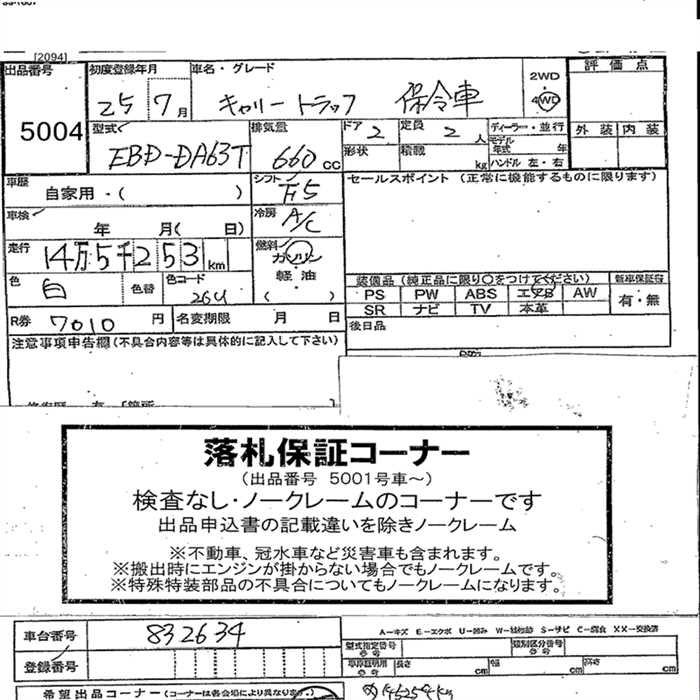 [2094]
出品番号 初度登録年月 車名・グレード 2WD 評価点
5004 25 7月 キャリートラック 保冷車 4WD
型式 排気量 ドア 2 定員 2人 ディーラー・並行 外装 内装
EBD-DA63T 660cc 形状 積載 kg モデル年式 年 ハンドル 左・右
車歴 自家用・( ) シフト F5 セールスポイント (正常に機能するものに限ります)
車検 年 月( 日) 冷房 A/C
走行 14万5千253km 燃料 ガソリン 軽油 ( )
色 白 色替 色コード 26U 装備品 (純正品に限り〇をつけてください) 新車保証書
PS PW ABS エアB AW 有・無
SR ナビ TV 本革
R券 7010円 名変期限 月 日 後日品
注意事項申告欄(不具合内容等は具体的に記入して下さい)
落札保証コーナー
(出品番号 5001号車～)
検査なし・ノークレームのコーナーです
出品申込書の記載違いを除きノークレーム
※不動車、冠水車など災害車も含まれます。
※搬出時にエンジンが掛からない場合でもノークレームです。
※特殊特装部品の不具合についてもノークレームになります。
車台番号 832634 A-キズ E-エクボ U-凹み W-補修跡 S-サビ C-腐食 XX-交換済
型式指定番号 類別区分番号
登録番号 車庫証明用 長さ cm 幅 cm 高さ cm
希望出品コーナー(コーナーは各会場により異なります)